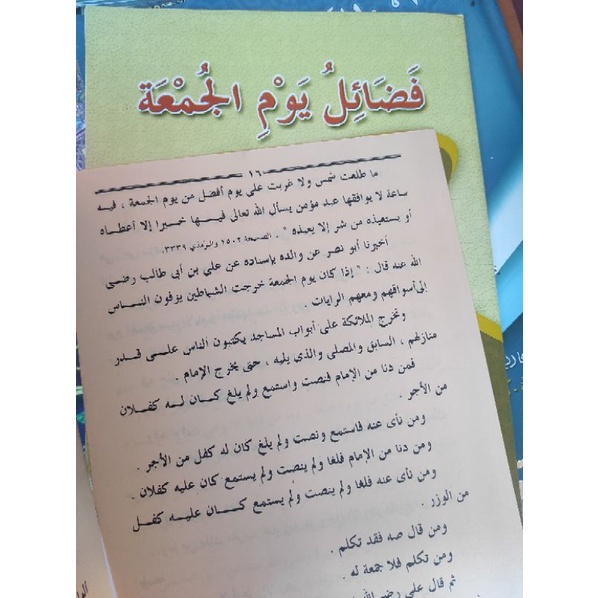 فَضَائِلُ يَوْمِ الجُمْعَة
١٦
ما طلعت شمس ولا غربت على يوم أفضل من يوم الجمعة ، فيه
ساعة لا يوافقها عبد مؤمن يسأل الله تعالى فيها خيرا إلا أعطاه
أو يستعيذه من شر إلا يعيذه " . الصحيحة ١٥٠٢ والترمذي ٣٣٣٩.
أخبرنا أبو نصر عن والده بإسناده عن علي بن أبي طالب رضي
الله عنه قال : " إذا كان يوم الجمعة خرجت الشياطين يزفون الناس
إلى أسواقهم ومعهم الرايات .
وتخرج الملائكة على أبواب المساجد يكتبون الناس على قدر
منازلهم ، السابق والمصلى والذي يليه ، حتى يخرج الإمام .
فمن دنا من الإمام فنصت واستمع ولم يلغ كان له كفلان
من الأجر .
ومن نأى عنه فاستمع ونصت ولم يلغ كان له كفل من الأجر .
ومن دنا من الإمام فلغا ولم ينصت ولم يستمع كان عليه كفلان .
ومن نأى عنه فلغا ولم ينصت ولم يستمع كان عليه كفل
من الوزر .
ومن قال صه فقد تكلم .
ومن تكلم فلا جمعة له .
ثم قال علي رضي الله